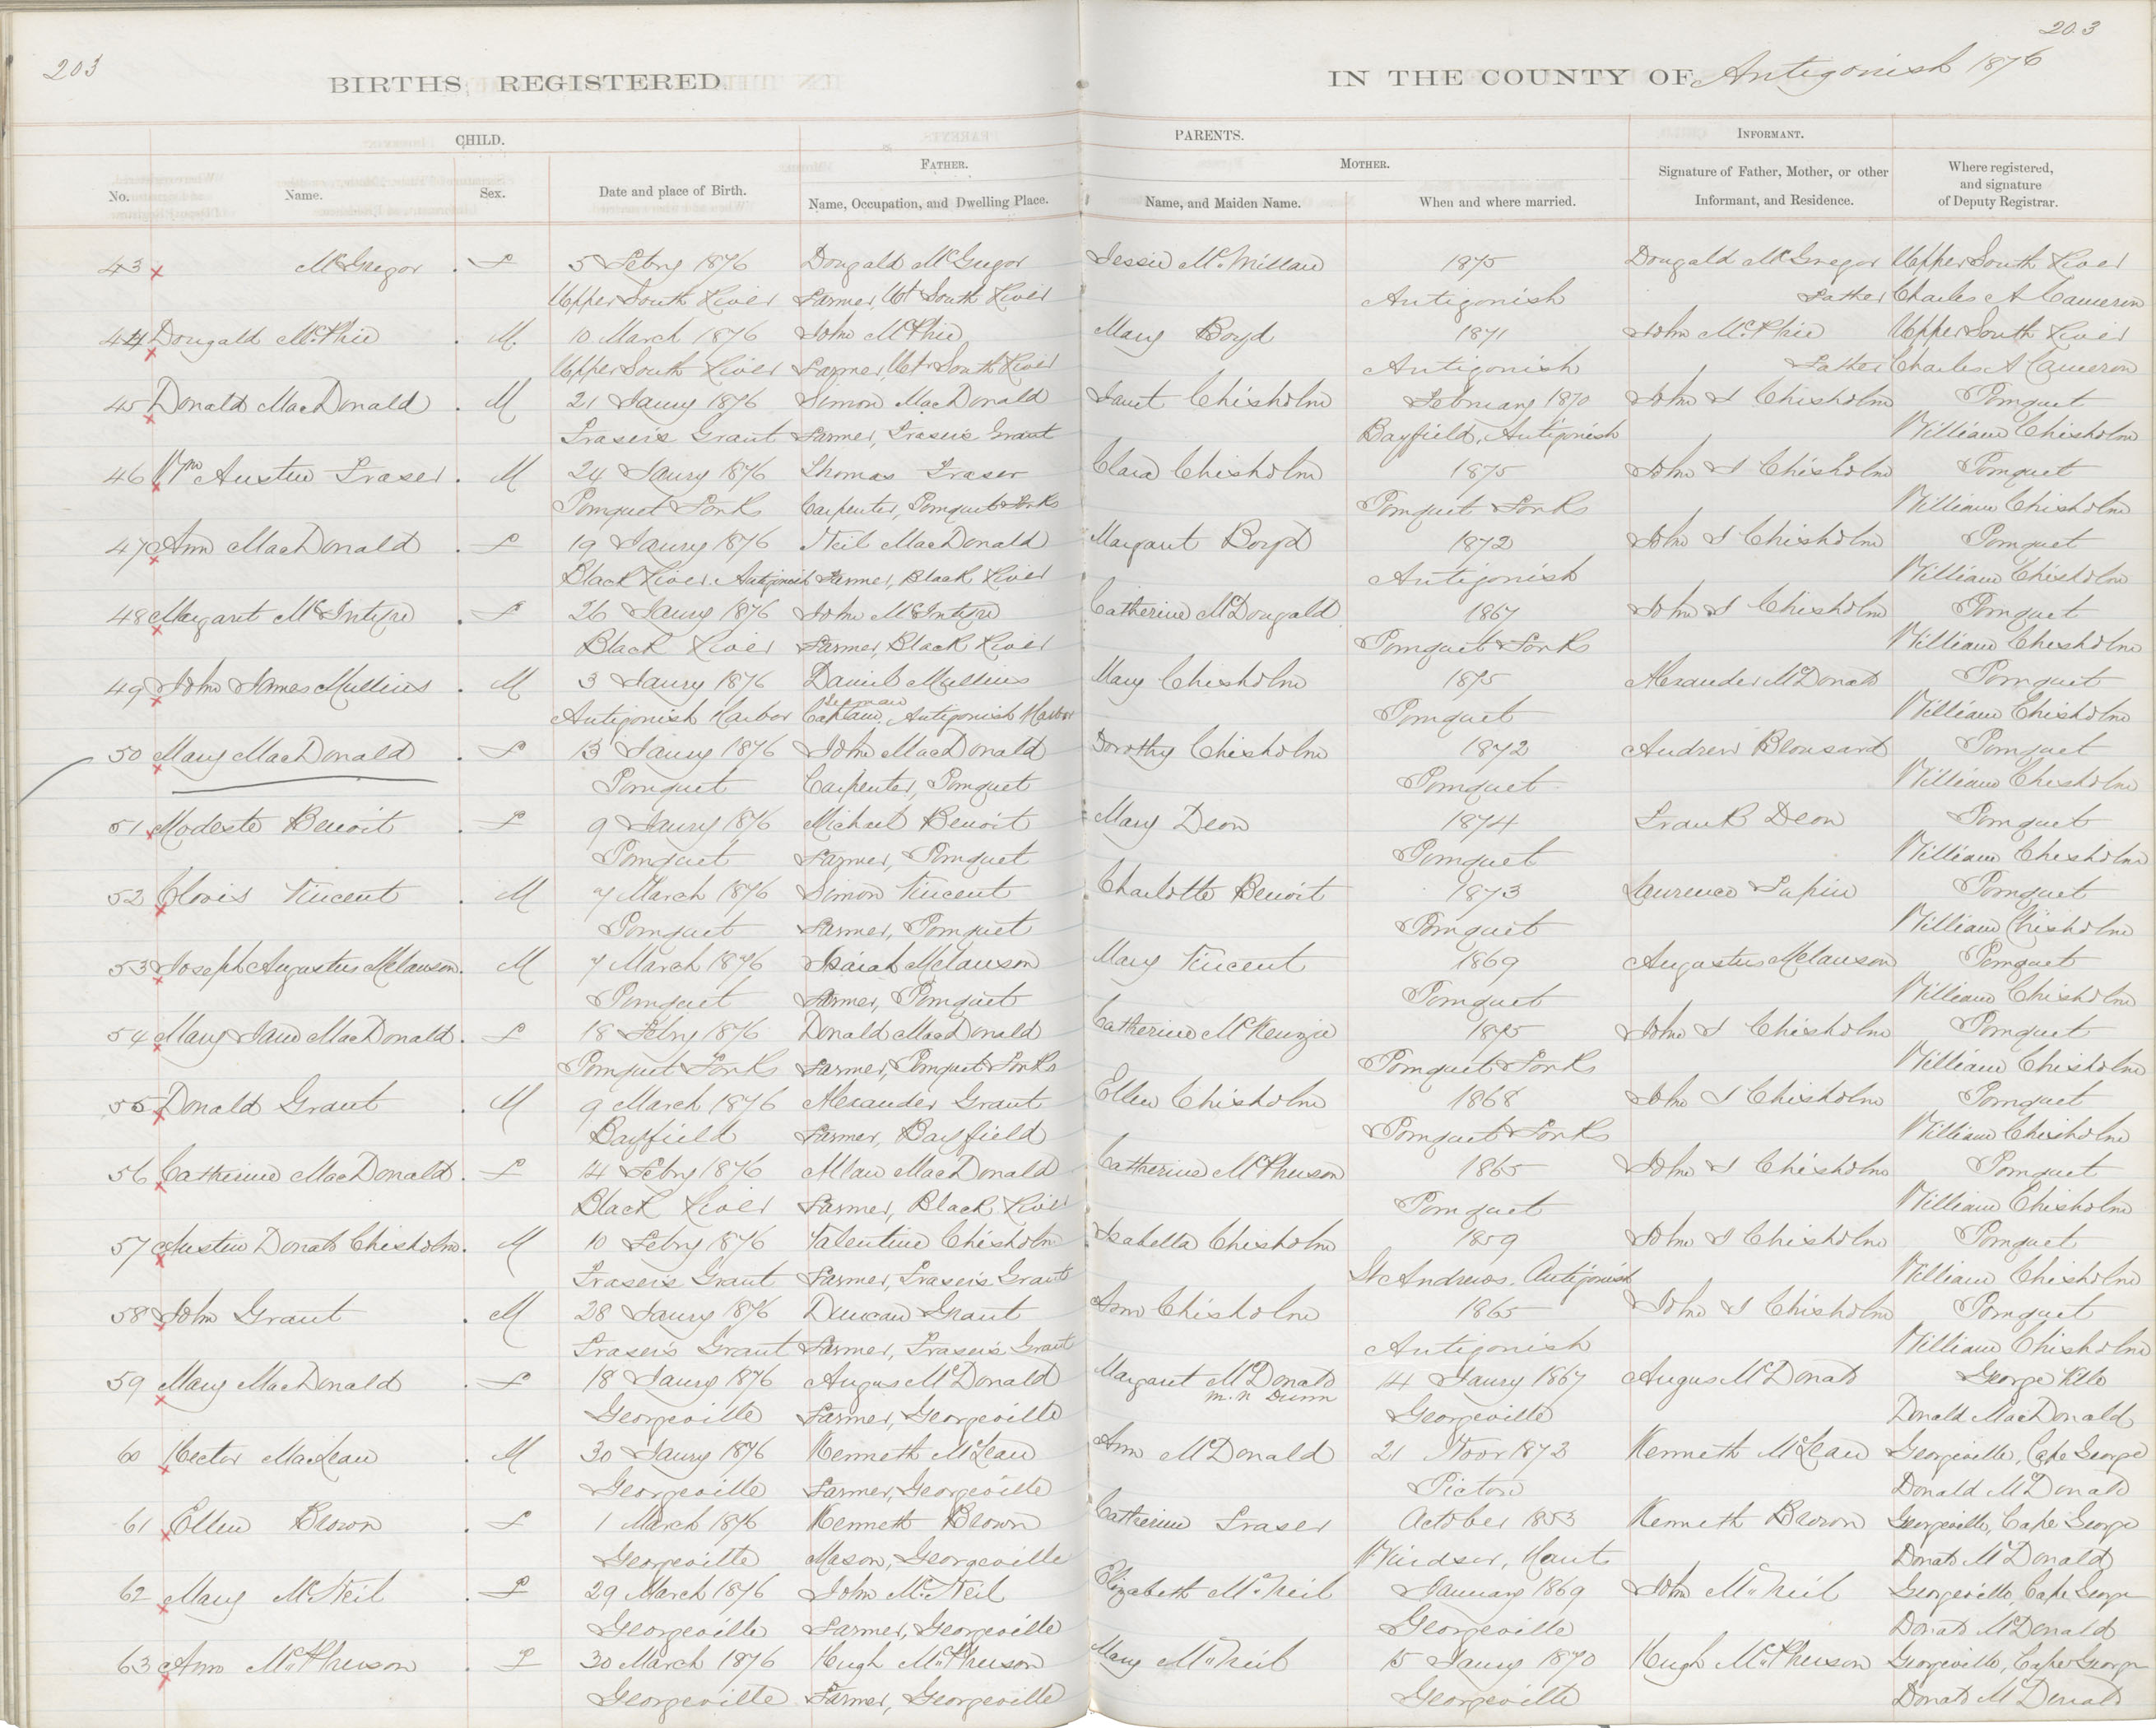 203
203
BIRTHS REGISTERED
IN THE COUNTY OF Antigonish 1876
CHILD.
PARENTS.
INFORMANT.
FATHER.
MOTHER.
No. Name. Sex. Date and place of Birth. Name, Occupation, and Dwelling Place. Name, and Maiden Name. When and where married. Signature of Father, Mother, or other Informant, and Residence. Where registered, and signature of Deputy Registrar.
43 McGregor . F 5 Febry 1876 Dougald McGregor Jessie McMillan 1875 Dougald McGregor Upper South River
Upper South River Farmer, Upr South River Antigonish Father Charles A Cameron
44 Dougald McPhie . M. 10 March 1876 John McPhie Mary Boyd 1871 John McPhie Upper South River
Upper South River Farmer, Upr South River Antigonish Father Charles A Cameron
45 Donald MacDonald . M 21 Jany 1876 Simon MacDonald Janet Chisholm February 1870 John S Chisholm Pomquet
Fraser's Grant Farmer, Fraser's Grant Bayfield, Antigonish William Chisholm
46 Wm Austin Fraser . M 24 Jany 1876 Thomas Fraser Clara Chisholm 1875 John S Chisholm Pomquet
Pomquet Forks Carpenter, Pomquet Forks Pomquet Forks William Chisholm
47 Ann MacDonald . F 19 Jany 1876 Neil MacDonald Margaret Boyd 1872 John S Chisholm Pomquet
Black River. Antigonish Farmer, Black River Antigonish William Chisholm
48 Margaret McIntyre . F 26 Jany 1876 John McIntyre Catherine McDougald 1867 John S Chisholm Pomquet
Black River Farmer, Black River Pomquet Forks William Chisholm
49 John James Mullins . M 3 Jany 1876 Daniel Mullins Mary Chisholm 1875 Alexander McDonald Pomquet
Antigonish Harbor Captain, Antigonish Harbor Pomquet William Chisholm
50 Mary MacDonald . F 13 Jany 1876 John MacDonald Dorothy Chisholm 1872 Andrew Pomquet
Pomquet Carpenter, Pomquet Pomquet William Chisholm
51 Modeste Benoit . F 9 Jany 1876 Michael Benoit Mary Deon 1874 Frank Deon Pomquet
Pomquet Farmer, Pomquet Pomquet William Chisholm
52 Clovis Vincent . M 7 March 1876 Simon Vincent Charlotte Benoit 1873 Laurence Pomquet
Pomquet Farmer, Pomquet Pomquet William Chisholm
53 Joseph Augustus Melanson . M 7 March 1876 Isaiah Melanson Mary Vincent 1869 Augustus Melanson Pomquet
Pomquet Farmer, Pomquet Pomquet William Chisholm
54 Mary Jane MacDonald . F 18 Febry 1876 Donald MacDonald Catherine McKenzie 1875 John S Chisholm Pomquet
Pomquet Forks Farmer, Pomquet Forks Pomquet Forks William Chisholm
55 Donald Grant . M 9 March 1876 Alexander Grant Ellen Chisholm 1868 John S Chisholm Pomquet
Bayfield Farmer, Bayfield Pomquet Forks William Chisholm
56 Catherine MacDonald . F 14 Febry 1876 Allan MacDonald Catherine McPherson 1865 John S Chisholm Pomquet
Black River Farmer, Black River Pomquet William Chisholm
57 Austin Donald Chisholm . M 10 Febry 1876 Valentine Chisholm Isabella Chisholm 1859 John S Chisholm Pomquet
Fraser's Grant Farmer, Fraser's Grant St Andrews, Antigonish William Chisholm
58 John Grant . M 28 Jany 1876 Duncan Grant Ann Chisholm 1865 John S Chisholm Pomquet
Fraser's Grant Farmer, Fraser's Grant Antigonish William Chisholm
59 Mary MacDonald . F 18 Jany 1876 Angus McDonald Margaret McDonald 14 Jany 1867 Angus McDonald George Ville
m.n Dunn
Georgeville Farmer, Georgeville Georgeville Donald MacDonald
60 Hector MacLean . M 30 Jany 1876 Kenneth McLean Ann McDonald 21 Novr 1873 Kenneth McLean Georgeville, Cape George
Georgeville Farmer, Georgeville Pictou Donald McDonald
61 Ellen Brown . F 1 March 1876 Kenneth Brown Catherine Fraser October 1853 Kenneth Brown Georgeville, Cape George
Georgeville Mason, Georgeville Windsor, Hants Donald McDonald
62 Mary McNeil . F 29 March 1876 John McNeil Elizabeth McNeil January 1869 John McNeil Georgeville, Cape George
Georgeville Farmer, Georgeville Georgeville Donald McDonald
63 Ann McPherson . F 30 March 1876 Hugh McPherson Mary McNeil 15 Jany 1870 Hugh McPherson Georgeville, Cape George
Georgeville Farmer, Georgeville Georgeville Donald McDonald